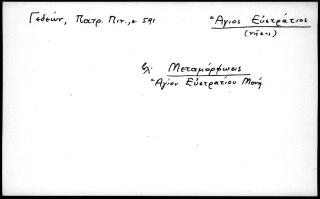 Γεδεών, Πατρ. Πιν., σ 591
Ἅγιος Εὐστράτιος
(νῆσος)
βλ. Μεταμόρφωσις
Ἁγίου Εὐστρατίου Μονή